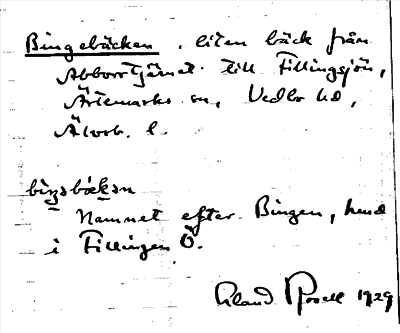 Bingebäcken, liten bäck från
Abborrtjärnet till Fillingsjön,
Ärtemarks sn, Vedbo hd,
Älvsb. l.
bi̱ŋəbäkən
Namnet efter Bingen, hmd
i Fillingen Ö.
Erland Rosell 1929